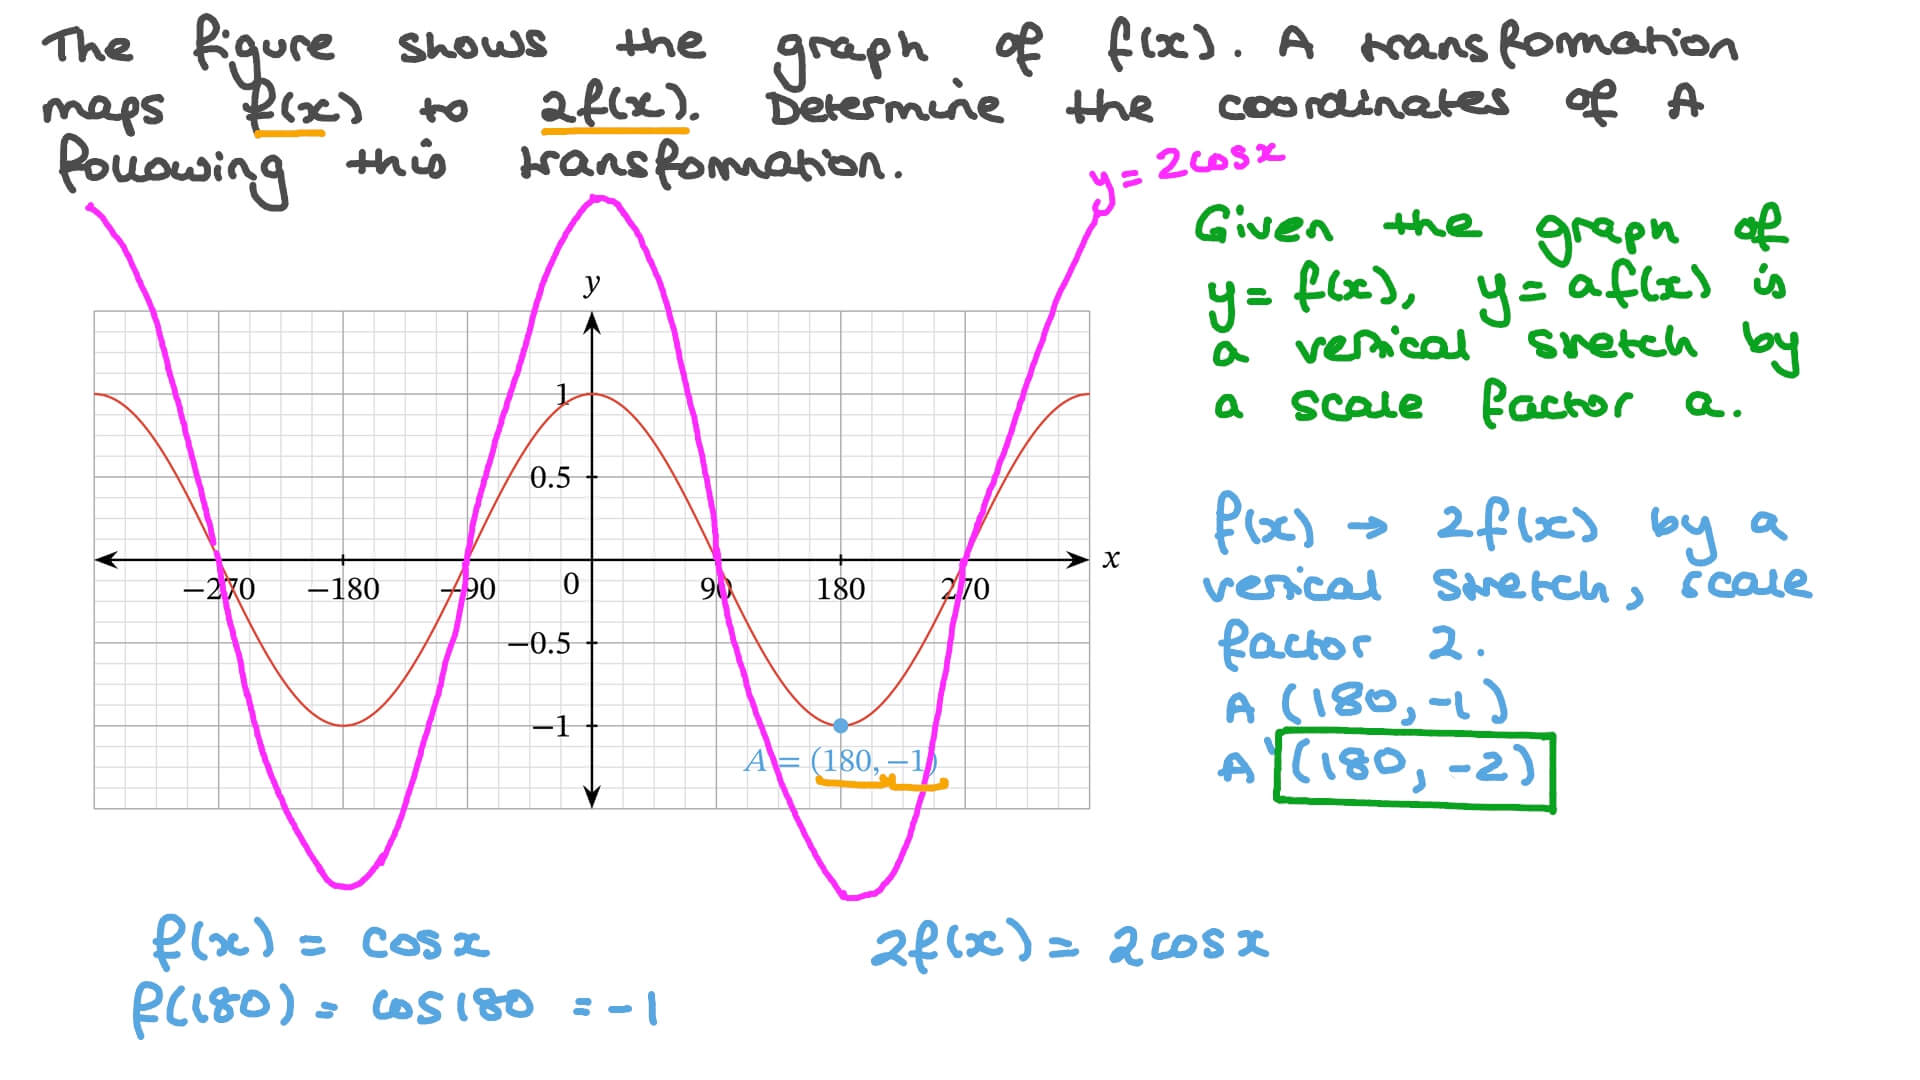 The figure shows the graph of f(x). A transformation
maps f(x) to 2f(x). Determine the coordinates of A
following this transformation.
y = 2cosx
Given the graph of
y = f(x), y = af(x) is
a vertical stretch by
a scale factor a.
y
1
0.5
x
−270 −180 −90 0 90 180 270
−0.5
−1
A = (180, −1)
f(x) → 2f(x) by a
vertical stretch, scale
factor 2.
A (180, -1)
A' (180, -2)
f(x) = cosx
2f(x) = 2cosx
f(180) = cos180 = -1